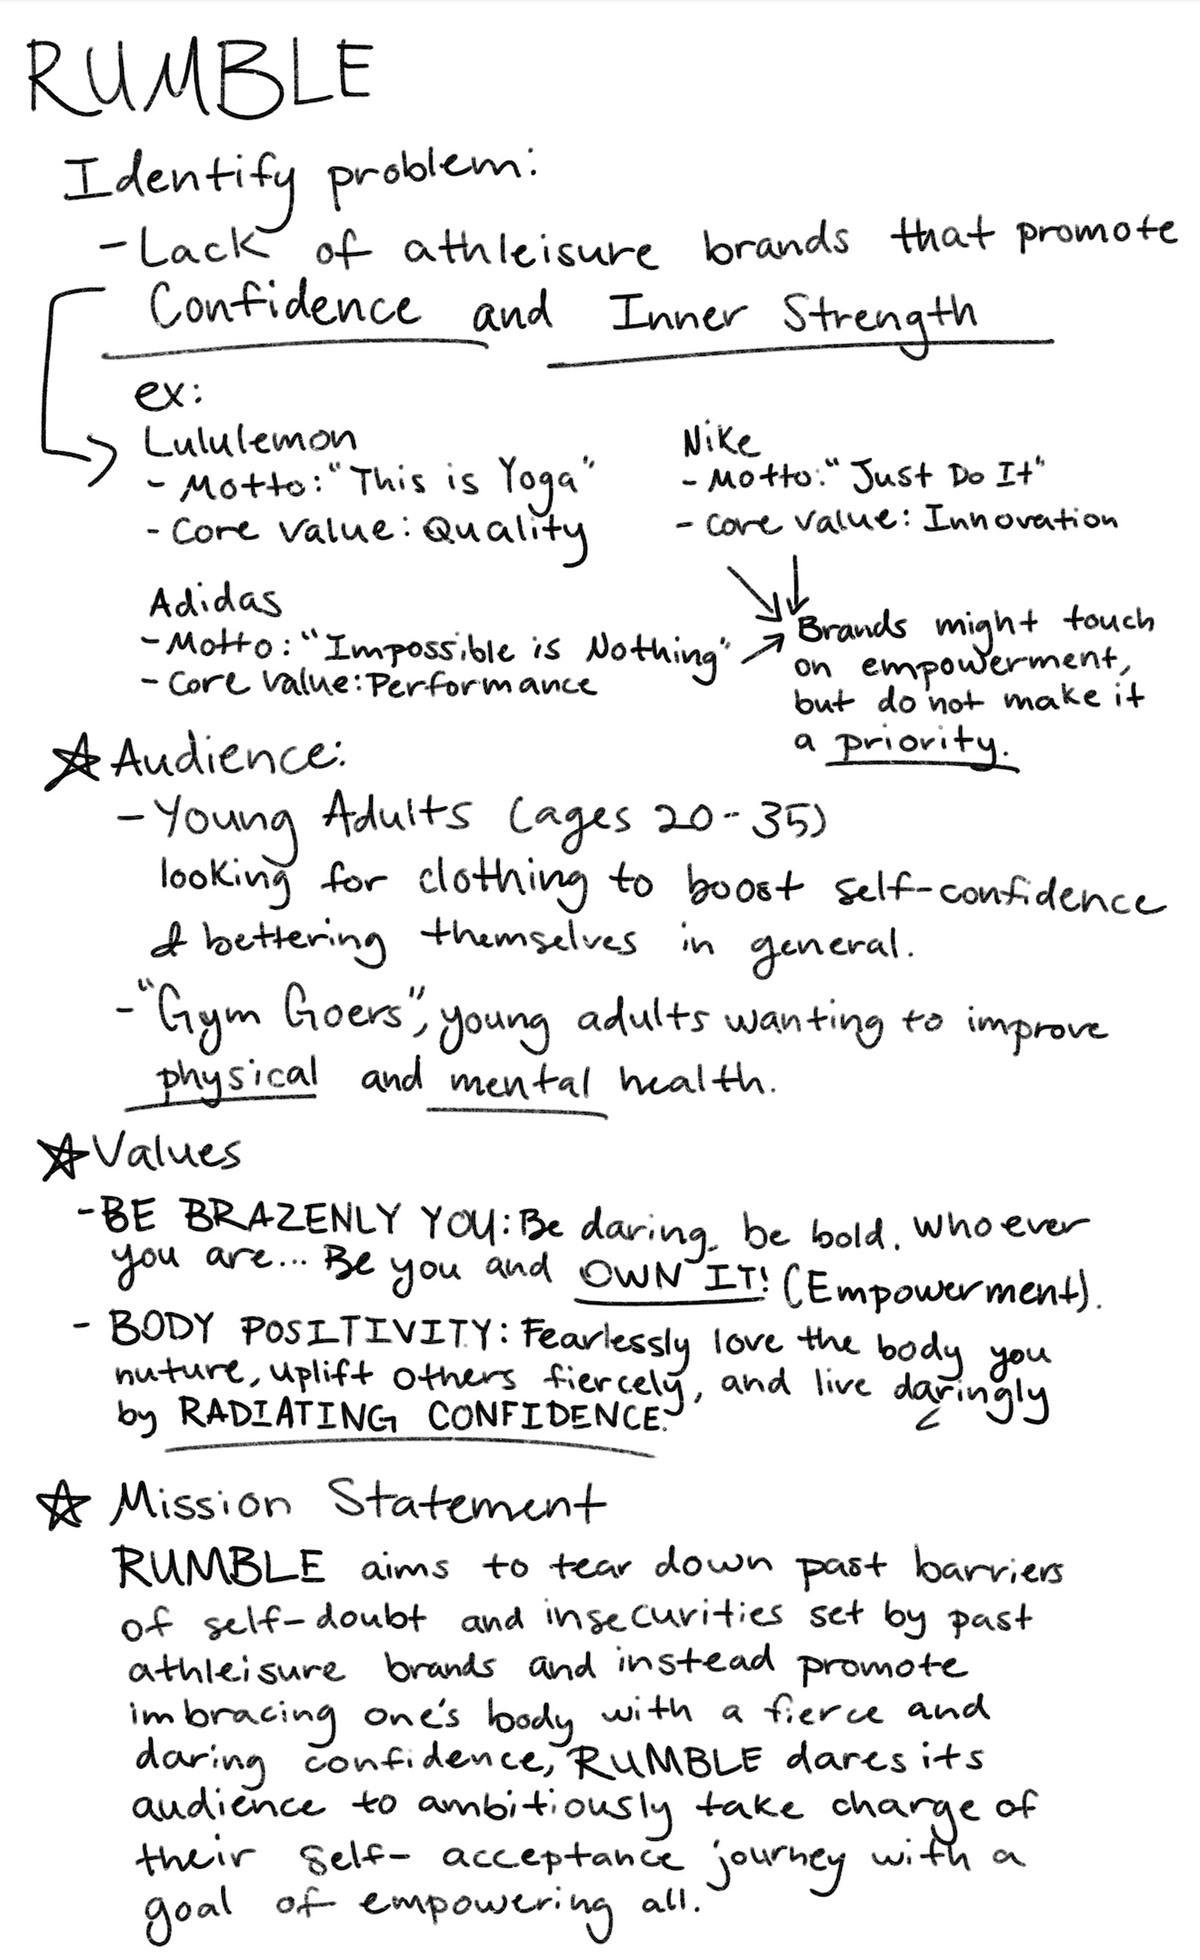 RUMBLE
Identify problem:
- Lack of athleisure brands that promote
Confidence and Inner Strength
ex:
Lululemon
- Motto: "This is Yoga"
- Core Value: Quality
Nike
- Motto: "Just Do It"
- Core Value: Innovation
Adidas
- Motto: "Impossible is Nothing"
- Core Value: Performance
Brands might touch
on empowerment,
but do not make it
a priority.
☆ Audience:
- Young Adults (ages 20-35)
looking for clothing to boost self-confidence
& bettering themselves in general.
- "Gym Goers", young adults wanting to improve
physical and mental health.
☆ Values
- BE BRAZENLY YOU: Be daring, be bold, whoever
you are... Be you and OWN IT! (Empowerment).
- BODY POSITIVITY: Fearlessly love the body you
nuture, uplift others fiercely, and live daringly
by RADIATING CONFIDENCE.
☆ Mission Statement
RUMBLE aims to tear down past barriers
of self-doubt and insecurities set by past
athleisure brands and instead promote
imbracing one's body with a fierce and
daring confidence, RUMBLE dares its
audience to ambitiously take charge of
their self-acceptance journey with a
goal of empowering all.